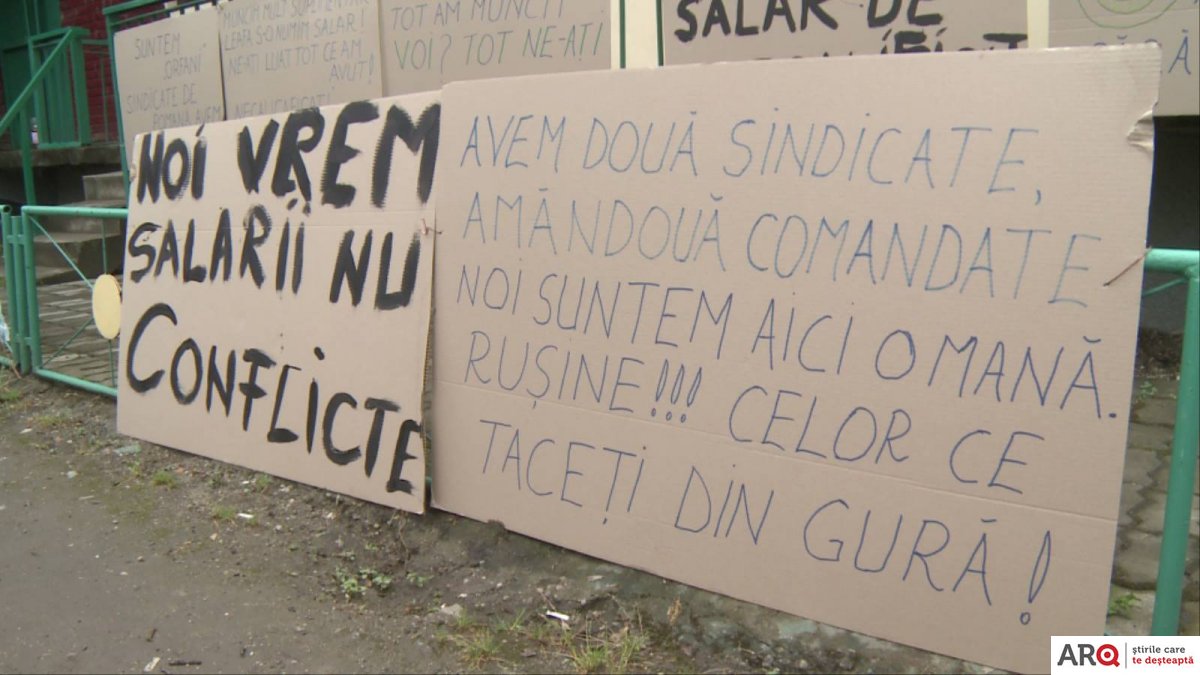 SUNTEM
ORFANI
SINDICATE DE
POMANĂ AVEM
MUNCIM MULT SUPLIMENTAR
LEAFA S-O NUMIM SALAR!
NE-AȚI LUAT TOT CE AM
AVUT!
TOT AM MUNCIT
VOI? TOT NE-AȚI
SALAR DE
NOI VREM
SALARII NU
CONFLICTE
AVEM DOUĂ SINDICATE,
AMÂNDOUĂ COMANDATE
NOI SUNTEM AICI O MANĂ.
RUȘINE!!! CELOR CE
TACEȚI DIN GURĂ!
ARQ știrile care
te deșteaptă